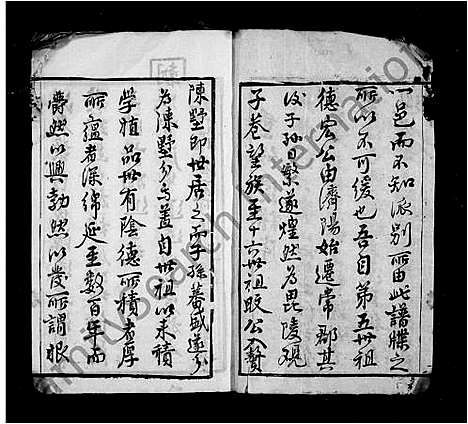 一邑而不知派别所由此譜牒之
所以不可緩也吾自第五世祖
德宏公由濟陽始遷常郡其
後子孫日繁遂煌然為毘陵硯
子巷望族至十六世祖 公贅
陳墅即世居之而子孫蕃盛遂分
為陳墅分焉蓋自世祖以來積
學植品世有陰德所積者厚
所蘊者深綿延至數百年而
爵然以興勃然以發所謂根